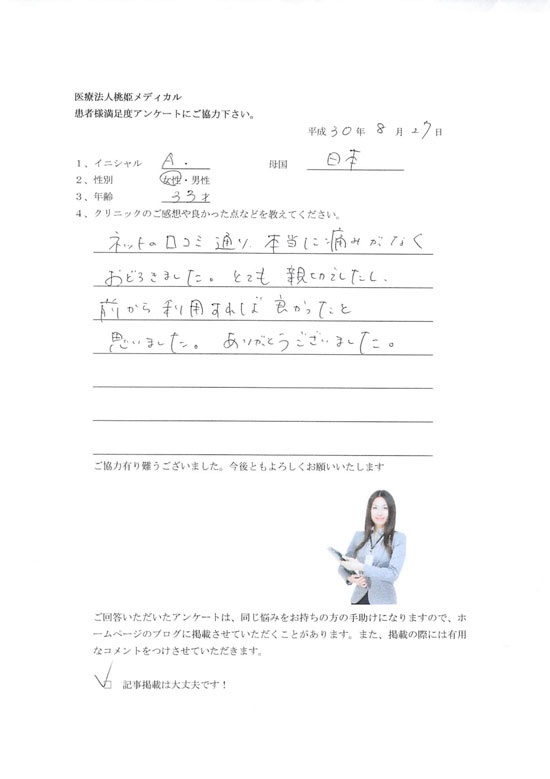 医療法人桃姫メディカル
患者様満足度アンケートにご協力下さい。
平成 30 年 8 月 27 日
1、イニシャル A. 母国 日本
2、性別 女性・男性
3、年齢 33才
4、クリニックのご感想や良かった点などを教えてください。
ネットの口コミ通り、本当に痛みがなく
おどろきました。とても親切でしたし、
前から利用すれば良かったと
思いました。ありがとうございました。
ご協力有り難うございました。今後ともよろしくお願いいたします
ご回答いただいたアンケートは、同じ悩みをお持ちの方の手助けになりますので、ホ
ームページのブログに掲載させていただくことがあります。また、掲載の際には有用
なコメントをつけさせていただきます。
☑ 記事掲載は大丈夫です！